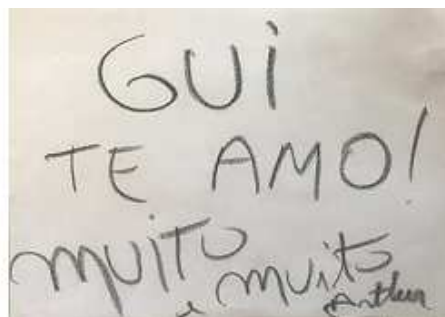 GUi
TE AMO!
MUITO
e muito
Arthur